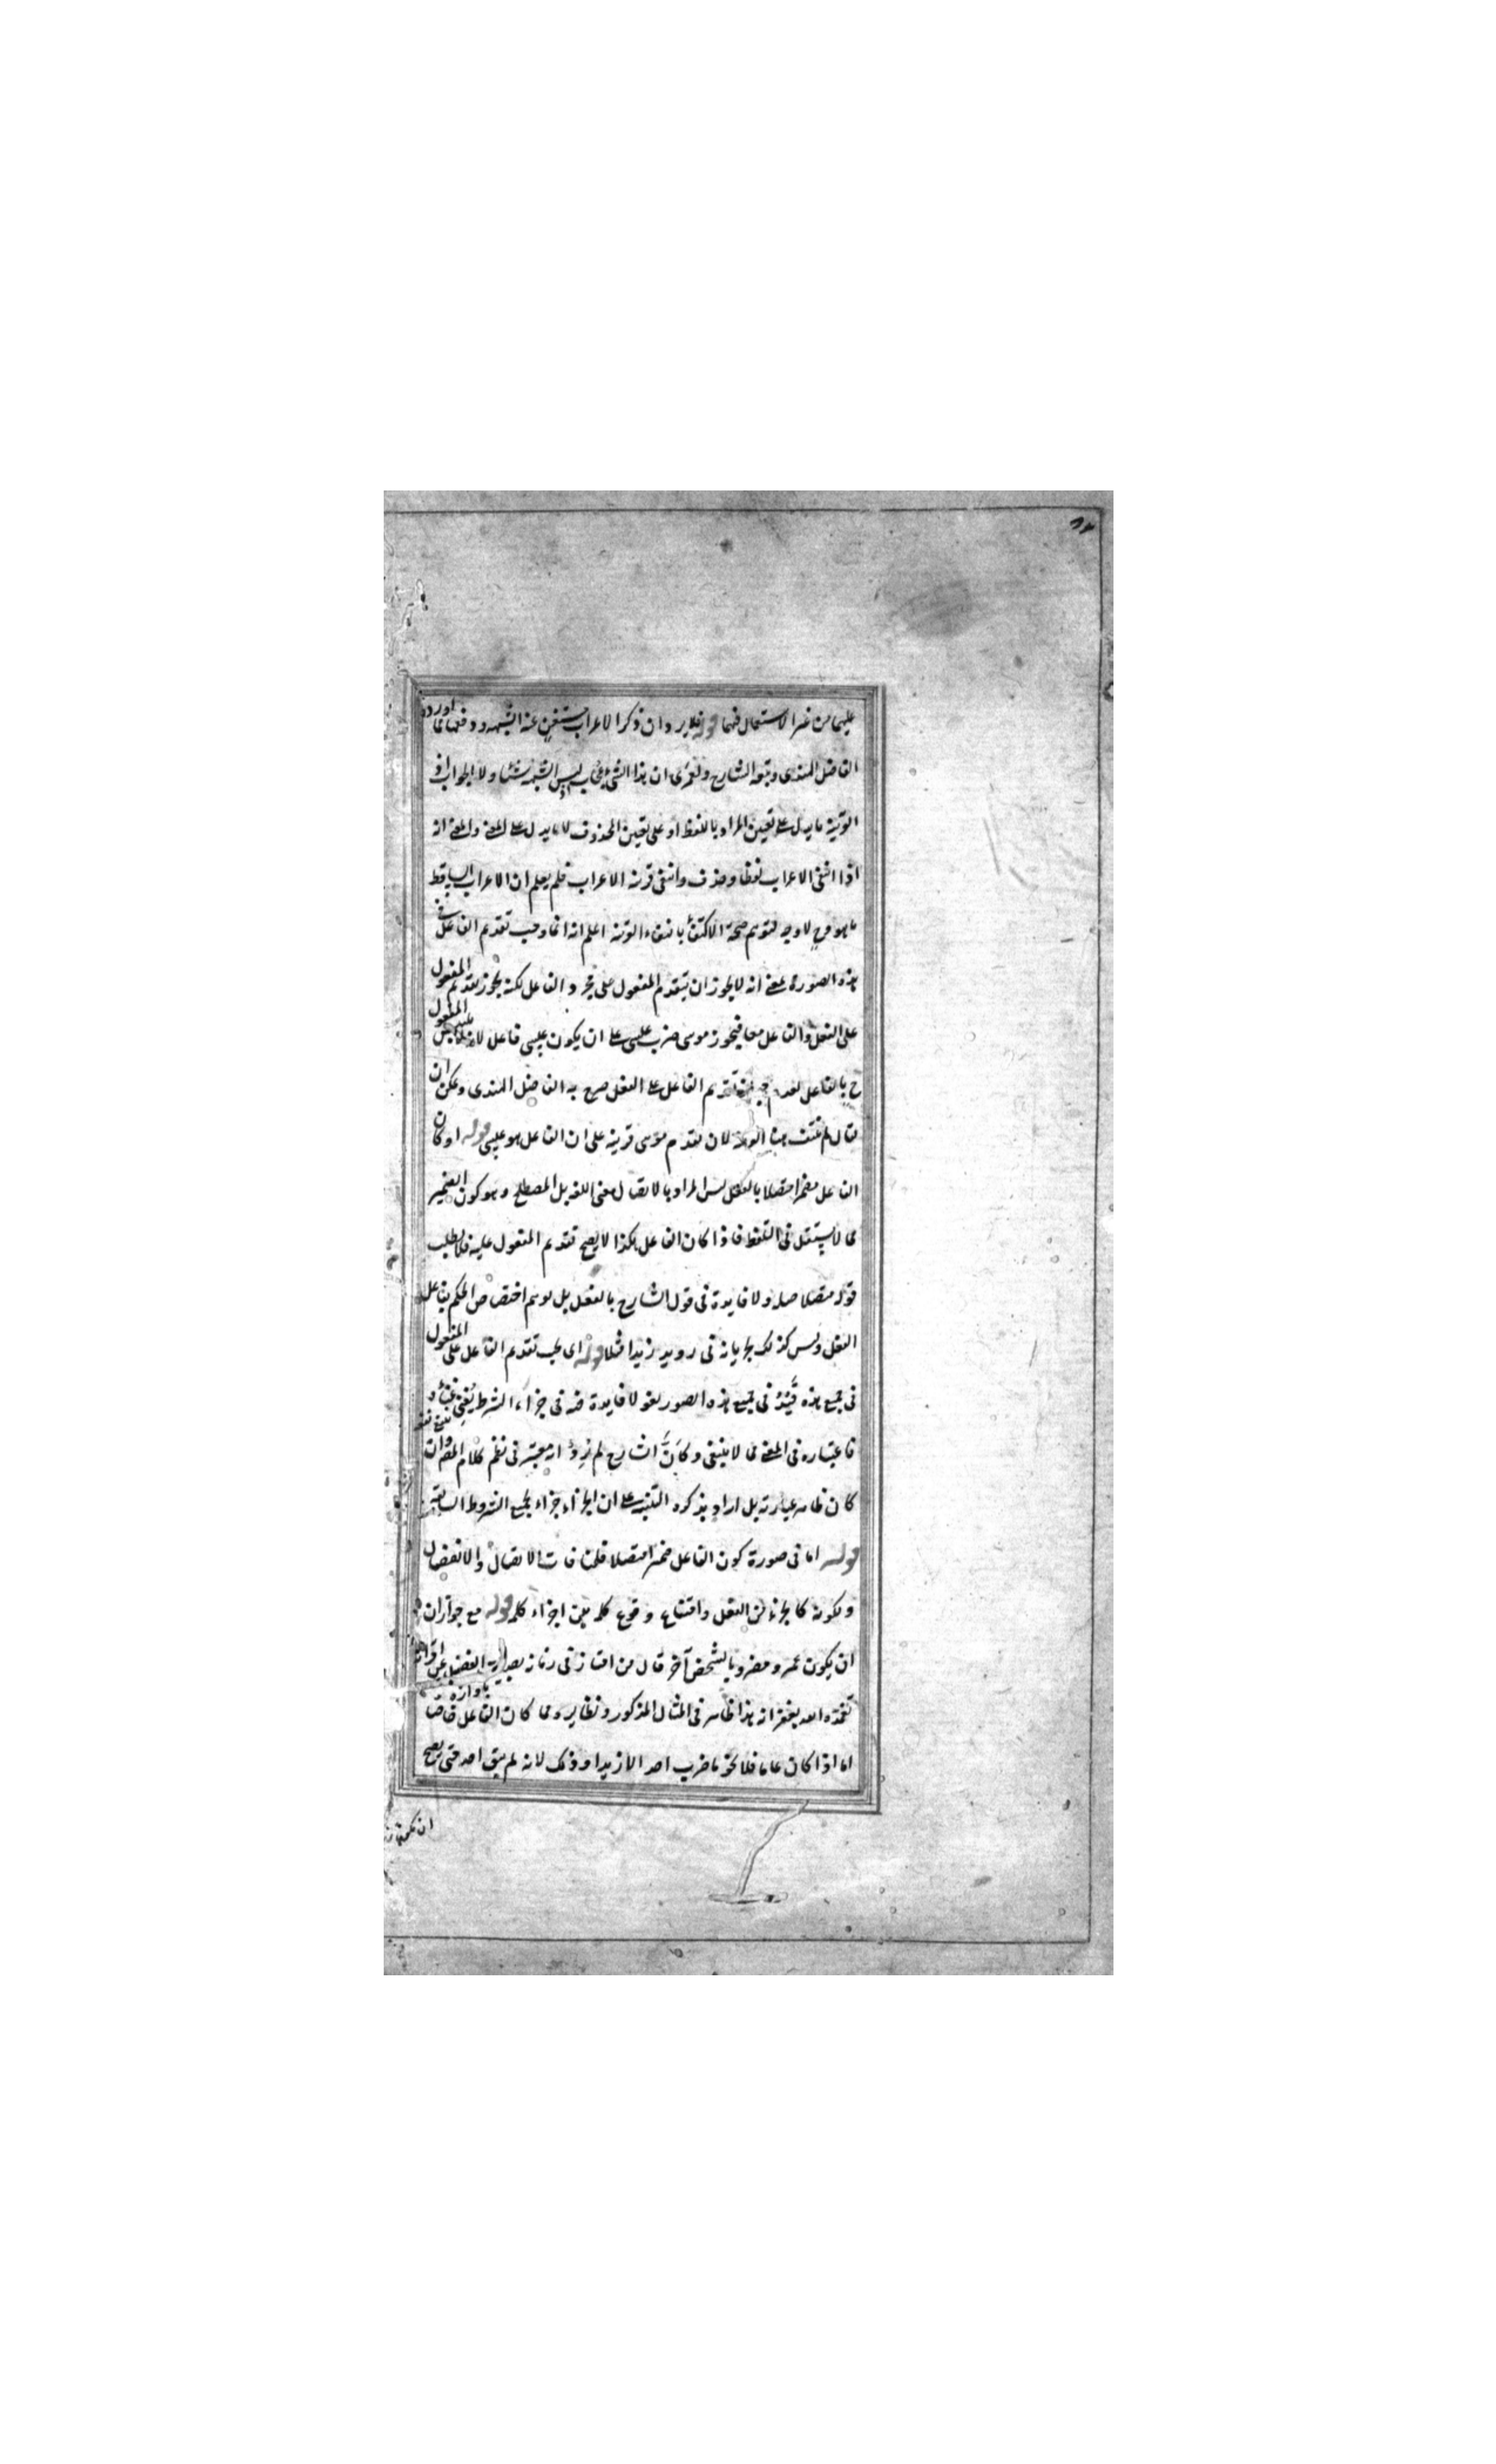 عليهما من غير الاستعمال فيهما قوله فلا يرد ان ذكر الاعراب مستغن عنه الشبهه ودفعها مما اورده
الفاضل الهندى وتبعه الشارح ولعمرى ان هذا الشئ عجاب ليس الشبهة شيئا ولا الجواب اذ
القرينة ما يدل على تعيين المراد باللفظ او على تعيين المحذوف لا ما يدل على المعنى والمعنى انه
اذا انتفى الاعراب لفظا وحذف وانتفى قرينة الاعراب فلم يعلم ان الاعراب الساقط
ما هو فح لا وجه لتوهم صحة الاكتفاء بانتفاء القرينة اعلم انه انما وجب تقديم الفاعل فى
هذه الصورة بمعنى انه لا يجوز ان يتقدم المفعول على مجرد الفاعل لكنه يجوز تقديم المفعول
على الفعل والفاعل معا فيجوز موسى ضرب عيسى على ان يكون عيسى فاعلا لانه لا يلتبس المفعول
ح بالفاعل لعدم تقديم الفاعل على الفعل صرح به الفاضل الهندى ويمكن ان
يقال لم تنتف هنا القرينة لان تقديم موسى قرينة على ان الفاعل هو عيسى قوله او كان
الفاعل مضمرا متصلا بالفعل ليس المراد بالاتصال معنى اللغه بل المصطلح وهو كون الضمير
مما لا يستقل فى التلفظ فاذا كان الفاعل هكذا لا يصح تقديم المفعول عليه فلا يطلب
قوله متصلا صله ولا فايدة فى قول الشارح بالفعل بل يوهم اختصاص الحكم بفاعل
الفعل وليس كذلك لجريانه فى رويد زيدا مثلا قوله اى يجب تقديم الفاعل على المفعول
فى جميع هذه قيد فى جميع هذه الصور لغو لا فايدة فيه فى جزاء الشرط يغنى غناؤه
فاعتباره فى المعنى مما لا ينبغى وكان الشارح لم يرد انه معتبر فى نظم كلام المصنف وان
كان ظاهر عبارته بل اراد بذكره التنبيه على ان الجزاء جزاء لجميع الشروط السابقة
قوله اما فى صورة كون الفاعل ضميرا متصلا فلمنافات الاتصال والانفصال
ولكونه كالجزء من الفعل وامتناع وقوع كلمة بين اجزاء كلمة قوله مع جواز ان
ان يكون عمرو مضروبا لشخص آخر قال من امتاز فى زمانه بصدارة الفضلاء عن اقرانه
تغمده الله بغفرانه هذا ظاهر فى المثال المذكور ونظايره مما كان الفاعل خاصا
اما اذا كان عاما فلا نحو ما ضرب احد الا زيدا وذلك لانه لم يبق احد حتى يصح
ان يكون